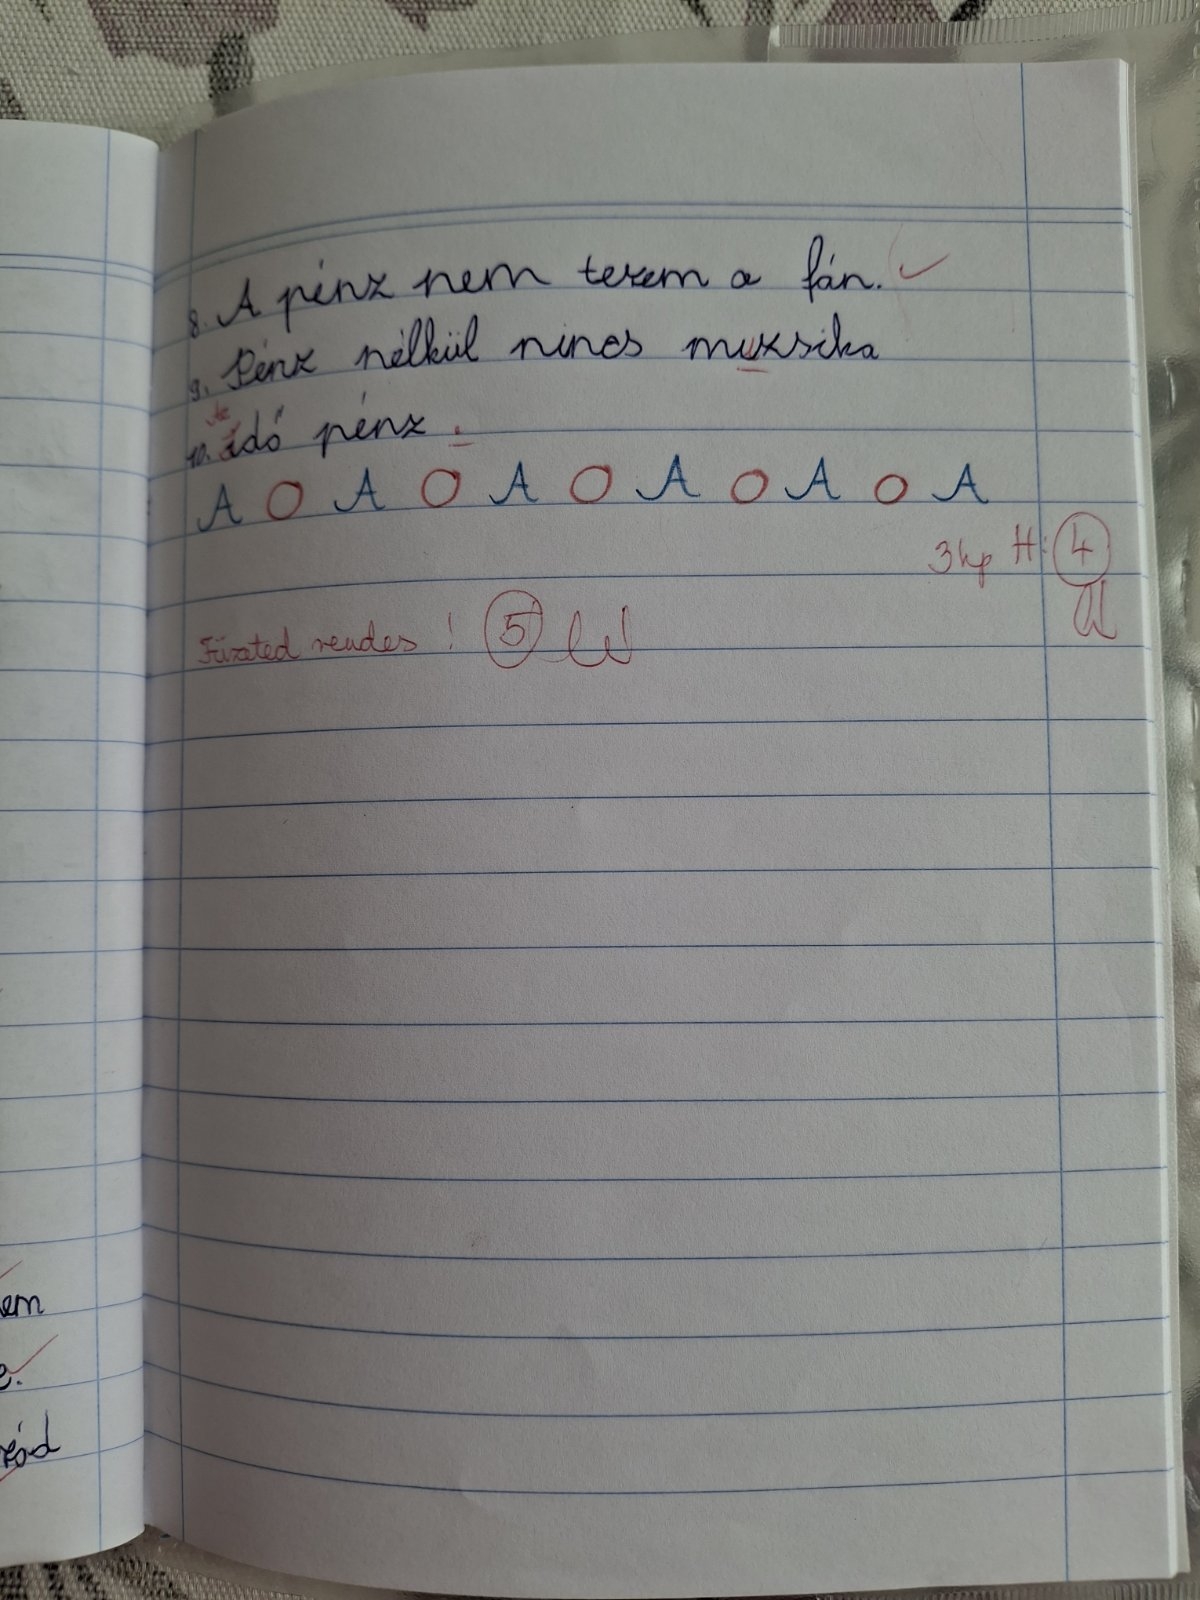 8. A pénz nem terem a fán.
9. Pénz nélkül nincs muzsika
10. idő pénz .
A O A O A O A O A O A
3 hp H: 4
Füzeted rendes ! 5
em
e.
rád